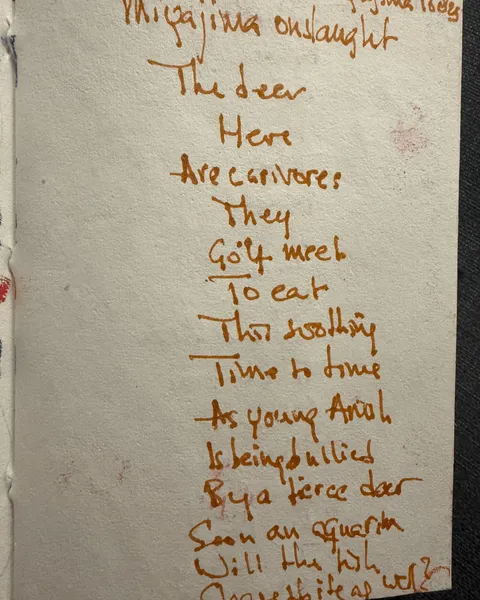 Miyajima onslaught
The deer
Here
Are carivores
They
meet
To eat
This soothing
Time to time
As young
Is being bullied
By a fierce deer
Soon an aquarim
Will the fish
bite as well?